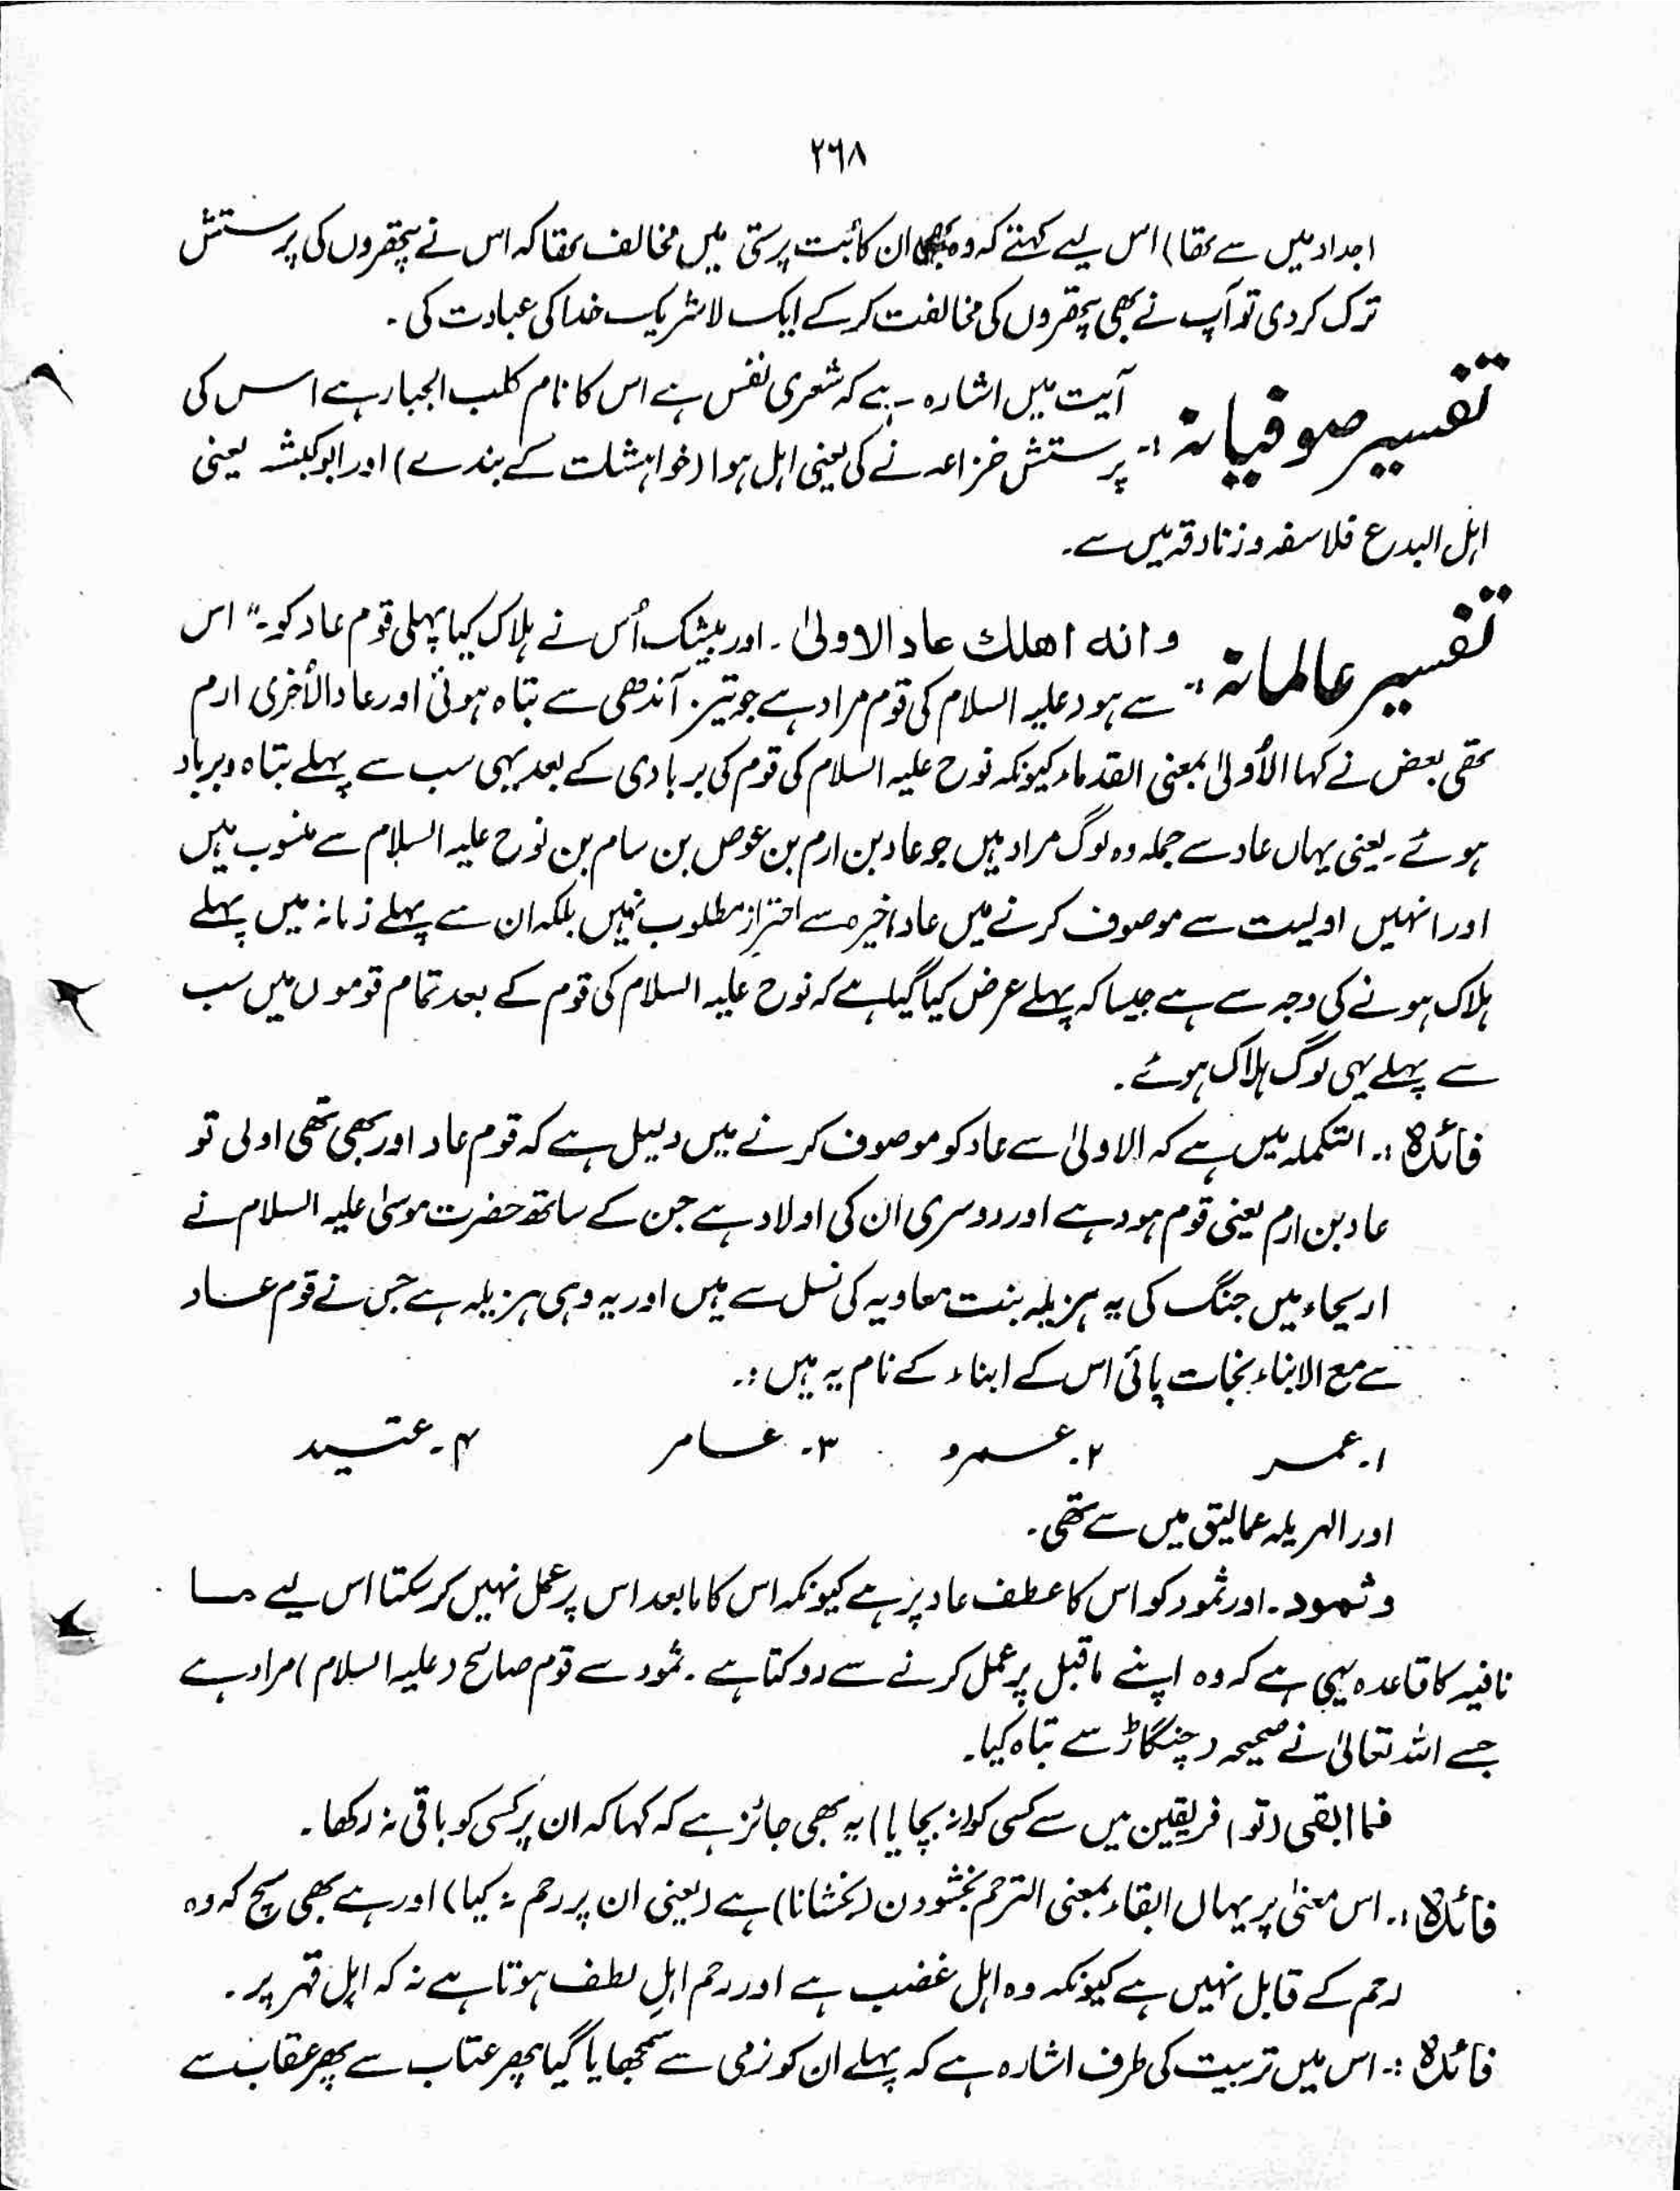 ۲۶۸
اجداد میں سے تھا) اس لیے کہتے کہ وہ بھی ان کا بُت پرستی میں مخالف تھا کہ اس نے پتھروں کی پرستش
ترک کر دی تو آپ نے بھی پتھروں کی مخالفت کر کے ایک لاشریک خدا کی عبادت کی ۔
تفسیر صوفیانہ :۔ آیت میں اشارہ ہے کہ شعری نفس ہے اس کا نام کلب الجبار ہے اس کی
پرستش خزاعہ نے کی یعنی اہل ہوا (خواہشات کے بندے) اور ابوکبشہ یعنی
اہل البدع فلاسفہ و زنادقہ میں سے ۔
تفسیر عالمانہ :۔ وانه اهلك عاد الاولیٰ ۔ اور بیشک اُس نے ہلاک کیا پہلی قوم عاد کو ۔" اس
سے ہود علیہ السلام کی قوم مراد ہے جو تیز آندھی سے تباہ ہوئی اور عاد الأخریٰ ارم
تھی بعض نے کہا الأولیٰ بمعنی القدماء کیونکہ نوح علیہ السلام کی قوم کی بربادی کے بعد یہی سب سے پہلے تباہ و برباد
ہوئے ۔ یعنی یہاں عاد سے جملہ وہ لوگ مراد ہیں جو عاد بن ارم بن عوص بن سام بن نوح علیہ السلام سے منسوب ہیں
اور انہیں اولیت سے موصوف کرنے میں عاد اخیرہ سے احتراز مطلوب نہیں بلکہ ان سے پہلے زمانہ میں پہلے
ہلاک ہونے کی وجہ سے ہے جیسا کہ پہلے عرض کیا گیا ہے کہ نوح علیہ السلام کی قوم کے بعد تمام قوموں میں سب
سے پہلے یہی لوگ ہلاک ہوئے ۔
فائدہ :۔ التکملہ میں ہے کہ الاولیٰ سے عاد کو موصوف کرنے میں دلیل ہے کہ قوم عاد اور بھی تھی اولی تو
عاد بن ارم یعنی قوم ہود ہے اور دوسری ان کی اولاد ہے جن کے ساتھ حضرت موسیٰ علیہ السلام نے
اریحاء میں جنگ کی یہ ہزیلہ بنت معاویہ کی نسل سے ہیں اور یہ وہی ہزیلہ ہے جس نے قوم عاد
سے مع الابناء نجات پائی اس کے ابناء کے نام یہ ہیں :۔
۱۔ عمر ۲۔ عمرو ۳۔ عامر ۴۔ عتید
اور الہریلہ عمالیق میں سے تھی ۔
وثمود ۔ اور ثمود کو اس کا عطف عاد پر ہے کیونکہ اس کا مابعد اس پر عمل نہیں کر سکتا اس لیے ما
نافیہ کا قاعدہ یہی ہے کہ وہ اپنے ماقبل پر عمل کرنے سے روکتا ہے ۔ ثمود سے قوم صالح (علیہ السلام) مراد ہے
جسے اللہ تعالیٰ نے صیحہ (چنگاڑ سے تباہ کیا ۔
فما ابقی (تو) فریقین میں سے کسی کو (نہ بچایا) یہ بھی جائز ہے کہ کہا کہ ان پر کسی کو باقی نہ رکھا ۔
فائدہ :۔ اس معنیٰ پر یہاں ابقاء بمعنی الترحم بخشودن (بخشانا) ہے (یعنی ان پر رحم نہ کیا) اور ہے بھی سچ کہ وہ
رحم کے قابل نہیں ہے کیونکہ وہ اہل غضب ہے اور رحم اہلِ لطف ہوتا ہے نہ کہ اہل قہر پر ۔
فائدہ :۔ اس میں تربیت کی طرف اشارہ ہے کہ پہلے ان کو نرمی سے سمجھایا گیا پھر عتاب سے پھر عقاب سے